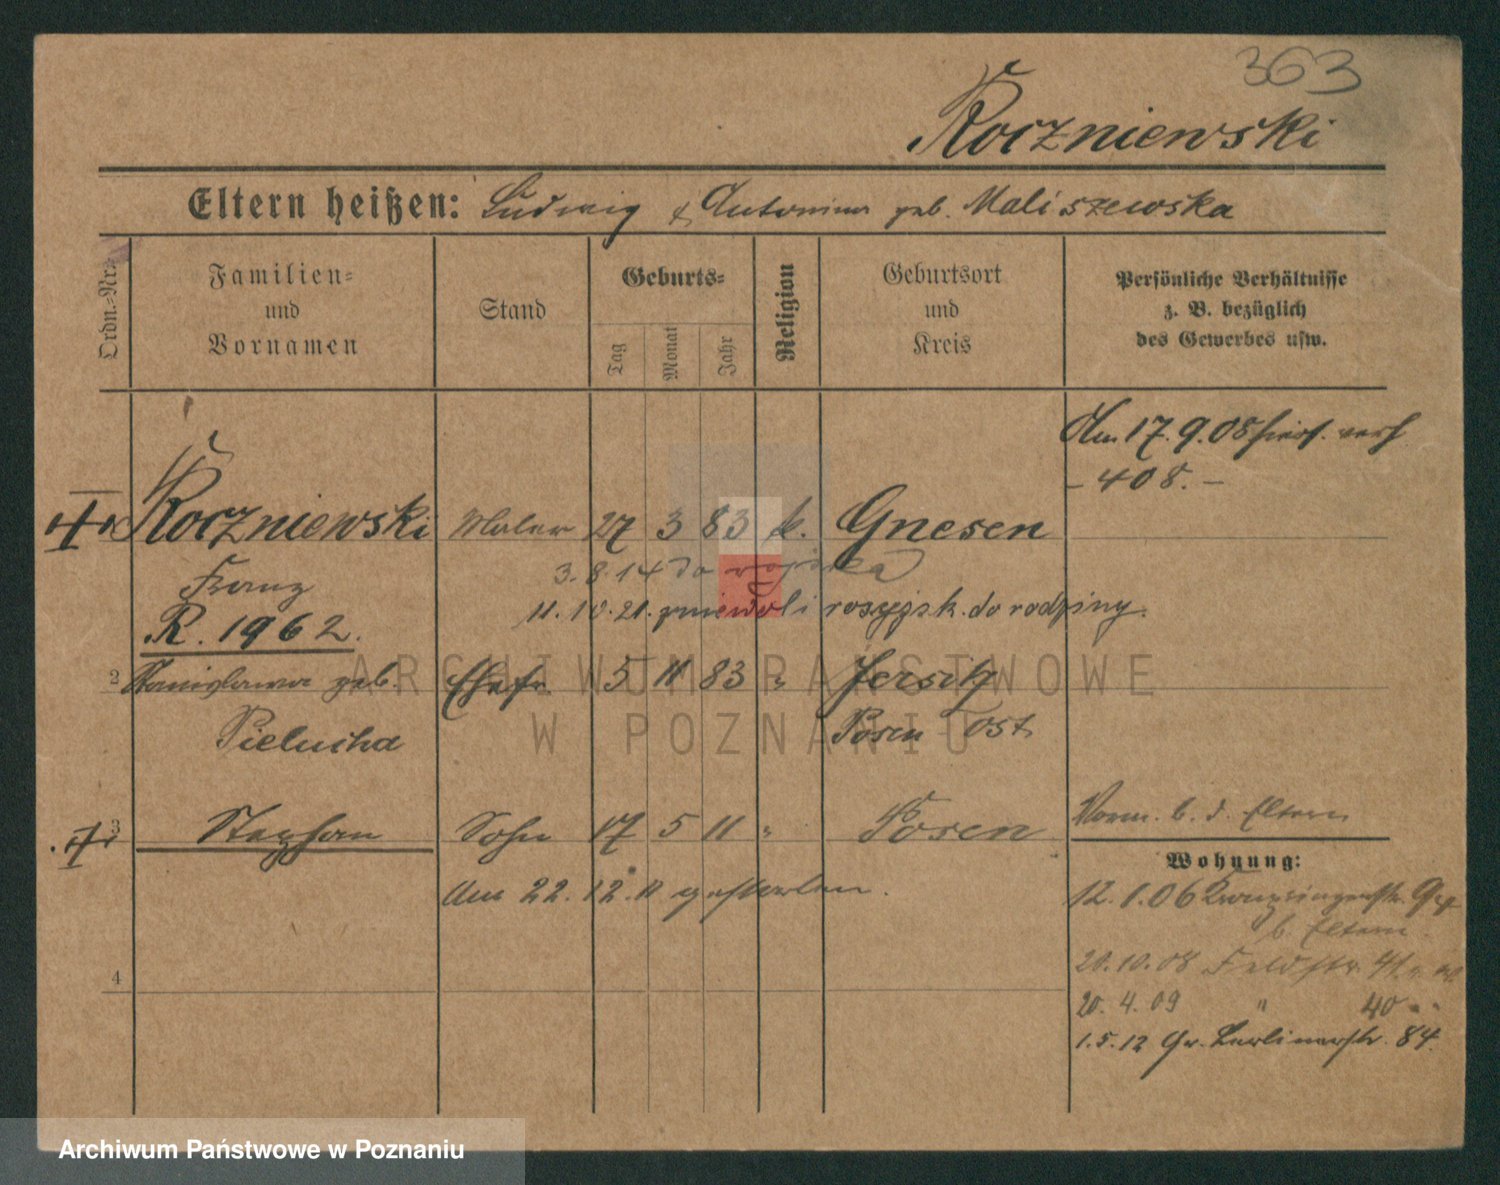 363
Koczniewski
Eltern heißen: Ludwig & Antonina geb. Maliszewska
Ordn.-Nr.
Familien-
und
Vornamen
Stand
Geburts-
Tag
Monat
Jahr
Religion
Geburtsort
und
Kreis
Persönliche Verhältnisse
z. B. bezüglich
des Gewerbes usw.
Am 17.9.08 hier verh
- 408. -
Koczniewski Maler 27 3 83 k. Gnesen
Franz
3.8.14 do wojska
R. 1962.
11.10.21. z niewoli rosyjsk. do rodziny.
2 Stanislawa geb. Ehefr 5 11 83 " Jersitz
Pielucha Posen Ost
3 Stephan Sohn 17 5 11 " Posen
Am 22.12.11 gestorben.
Vorm. b. d. Eltern
Wohnung:
12.1.06
b. Eltern
20.10.08 Feldstr. 41
20.4.09 " 40
1.5.12 Gr. Berlinerstr. 84.
4
ARCHIWUM PAŃSTWOWE
W POZNANIU
Archiwum Państwowe w Poznaniu